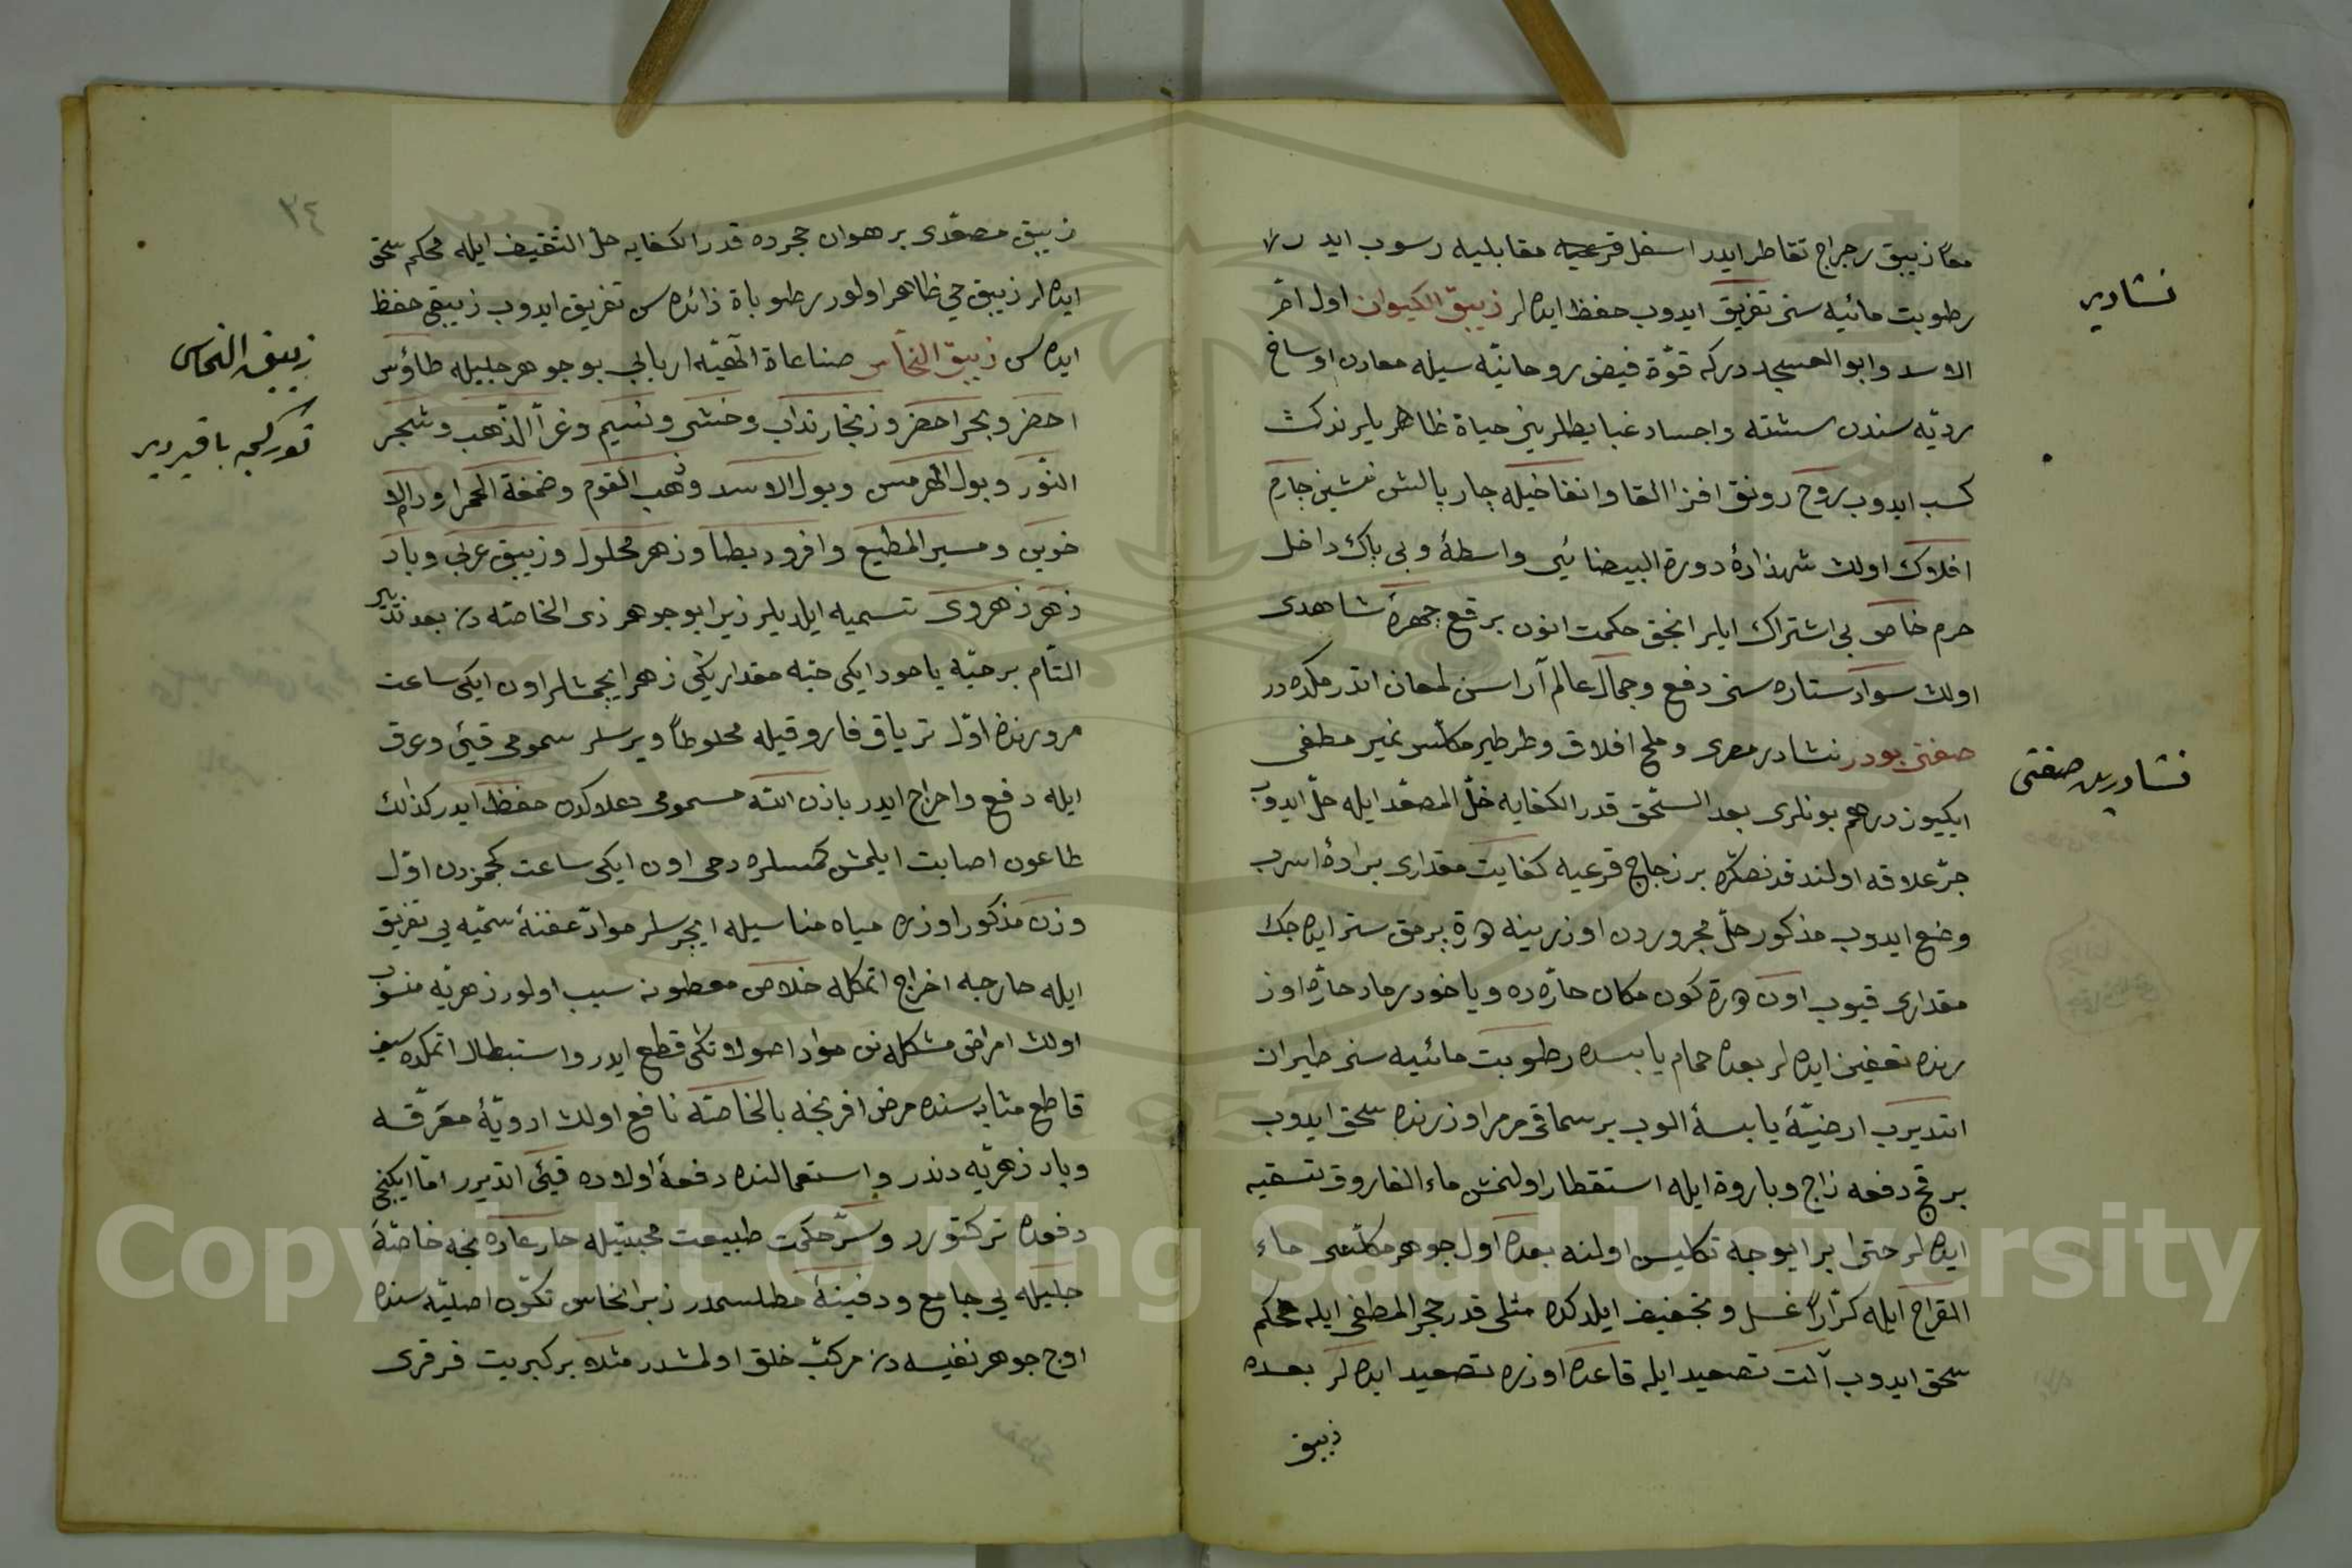 معاً زيبق رجراج تقاطر ايدر اسفل قرعيه مقابليه رسوب ايد
رطوبت مائيه سنى تفريق ايدوب حفظ ايده لر زيبق الكيوان اول
الاسد وابو العسجد دركه قوّة فيض روحانيّه سيله معادن اوساخ
رديّه سندن واجساد حياة ظاهر
كسب ايدوب روح رونق افزا القا وانفاخيله چار بالش نشين چارم
افلاك اولن شهذاده دورة البيضائى واسطۀ وبى باك داخل
حرم خاص بى اشتراك ايلر انجق حكمت انون برقع چهرۀ شاهدى
اولن سواد ستاره سنى دفع وجمال عالم آراسن لمعان اتدرمكده در
صفتى بودر نشادر مصرى وملح افلاق وطرطير مكلس غير مطفى
ايكيوز درهم بونلرى بعد السّحق قدر الكفايه خلّ المصعّد ايله حلّ ايدوب
جرّ علاقه اولندقدنصكره بر زجاج قرعيه كفايت مقدارى براده اسرب
وضع ايدوب مذكور حلّ مجروردن اوزرينه بر مق ستر ايده جك
مقدارى قيوب اون كون مكان حارّه ده وياخود رماد حارّه اوز
رنده تعفين ايده لر بعده حمام يابسده رطوبت مائيه سنى طيران
اتديرب ارضيّۀ يابسۀ الوب بر سماقى مرمر اوزرنده سحق ايدوب
بر قچ دفعه زاج وباروة ايله استقطار اولنمش ماء الفاروق تسقيه
ايده لر حتى برايوجه تكليس اولنه بعده اول جوهر مكلسى ماء
القراح ايله كرّاراً غسل وتجفيف ايلدكده مثلى قدر حجر المطفى ايله محكم
سحق ايدوب آلت تصعيد ايله قاعده اوزره تصعيد ايده لر بعده
زيبق
نشادر
نشادرين صفتى
٣٤
زيبق مصعّدى بر هوان حجرده قدر الكفايه خلّ الثقيف ايله محكم سحق
ايده لر زيبق حيّ ظاهر اولور رطوباة زائده سن تفريق ايدوب زيبقى حفظ
ايده سن زيبق النحاس صناعاة الٓهيّه اربابى بو جوهر جليله طاؤس
احضر وبحر احضر وزنجار نداب وخنثى ونسيم وغرآ الذّهب وشجر
النّور وبول الهرمس وبول الاسد وذهب القوم وضمغة الحمرا
خوين ومسير المطيع وافروديطنا وزهر محلول وزيبق عربى وباد
زهر زهروى تسميه ايلديلر زيرا بو جوهر ذى الخاصّه دن بعد تدبير
التّام بر حبّه ياحود ايكى حبّه مقداريكنى زهر ايچمشلر اون ايكى ساعت
مرورنده اوّل ترياق فاروقيله مخلوطاً ويرسلر سمومى قيئى وعرق
ايله دفع واحراج ايدر باذن الله مسمومى هلاكدن حفظ ايدر كذلك
طاعون اصابت ايلمش كمسلره دحى اون ايكى ساعت كچمزدن اوّل
وزن مذكور اوزره مياه مناسيله ايچرسلر موادّ عفنۀ سمّيه يى تفريق
ايله حارجه اخراج اتمكله خلاص معطونه سبب اولور زهريّه منسوب
اولن امراض مشكله نن مواد اصولاتنى قطع ايدر واستبطال اتمكده سيف
قاطع مثابه سنده مرض افرنجه بالخاصّه نافع اولن ادويّۀ معرّقه
وباد زهريّه دندر واستعمالنده دفعۀ اولاده قيئى اتديرر امّا ايكنجى
دفعده تركتورر وسرّ حكمت طبيعت محبتيله حار عاده نجه خاصّۀ
جليله يى جامع ودفينۀ مطلسمدر زيرا نحاس تكوّن اصليّه سنده
اوچ جوهر نفيسه دن مركّب خلق اولمشدر مثلا بر كبريت فرفرى
زيبق النحاس
تورکچه باقيردر
Copyright © King Saud University
1957